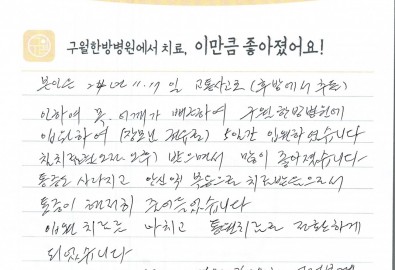 구월한방병원에서 치료, 이만큼 좋아졌어요!
본인은 24년 11.17일 교통사고로 (후방에서 추돌)
인하여 목, 어깨가 뻐근하여 구월한방병원에
입원하여 5일간 입원하였습니다
받으면서 많이 좋아졌습니다
통증도 사라지고 한약 복용으로 치료받음으로서
통증이 현저히 줄어들었습니다
입원 치료를 마치고 통원치료로 전환하게
되었습니다